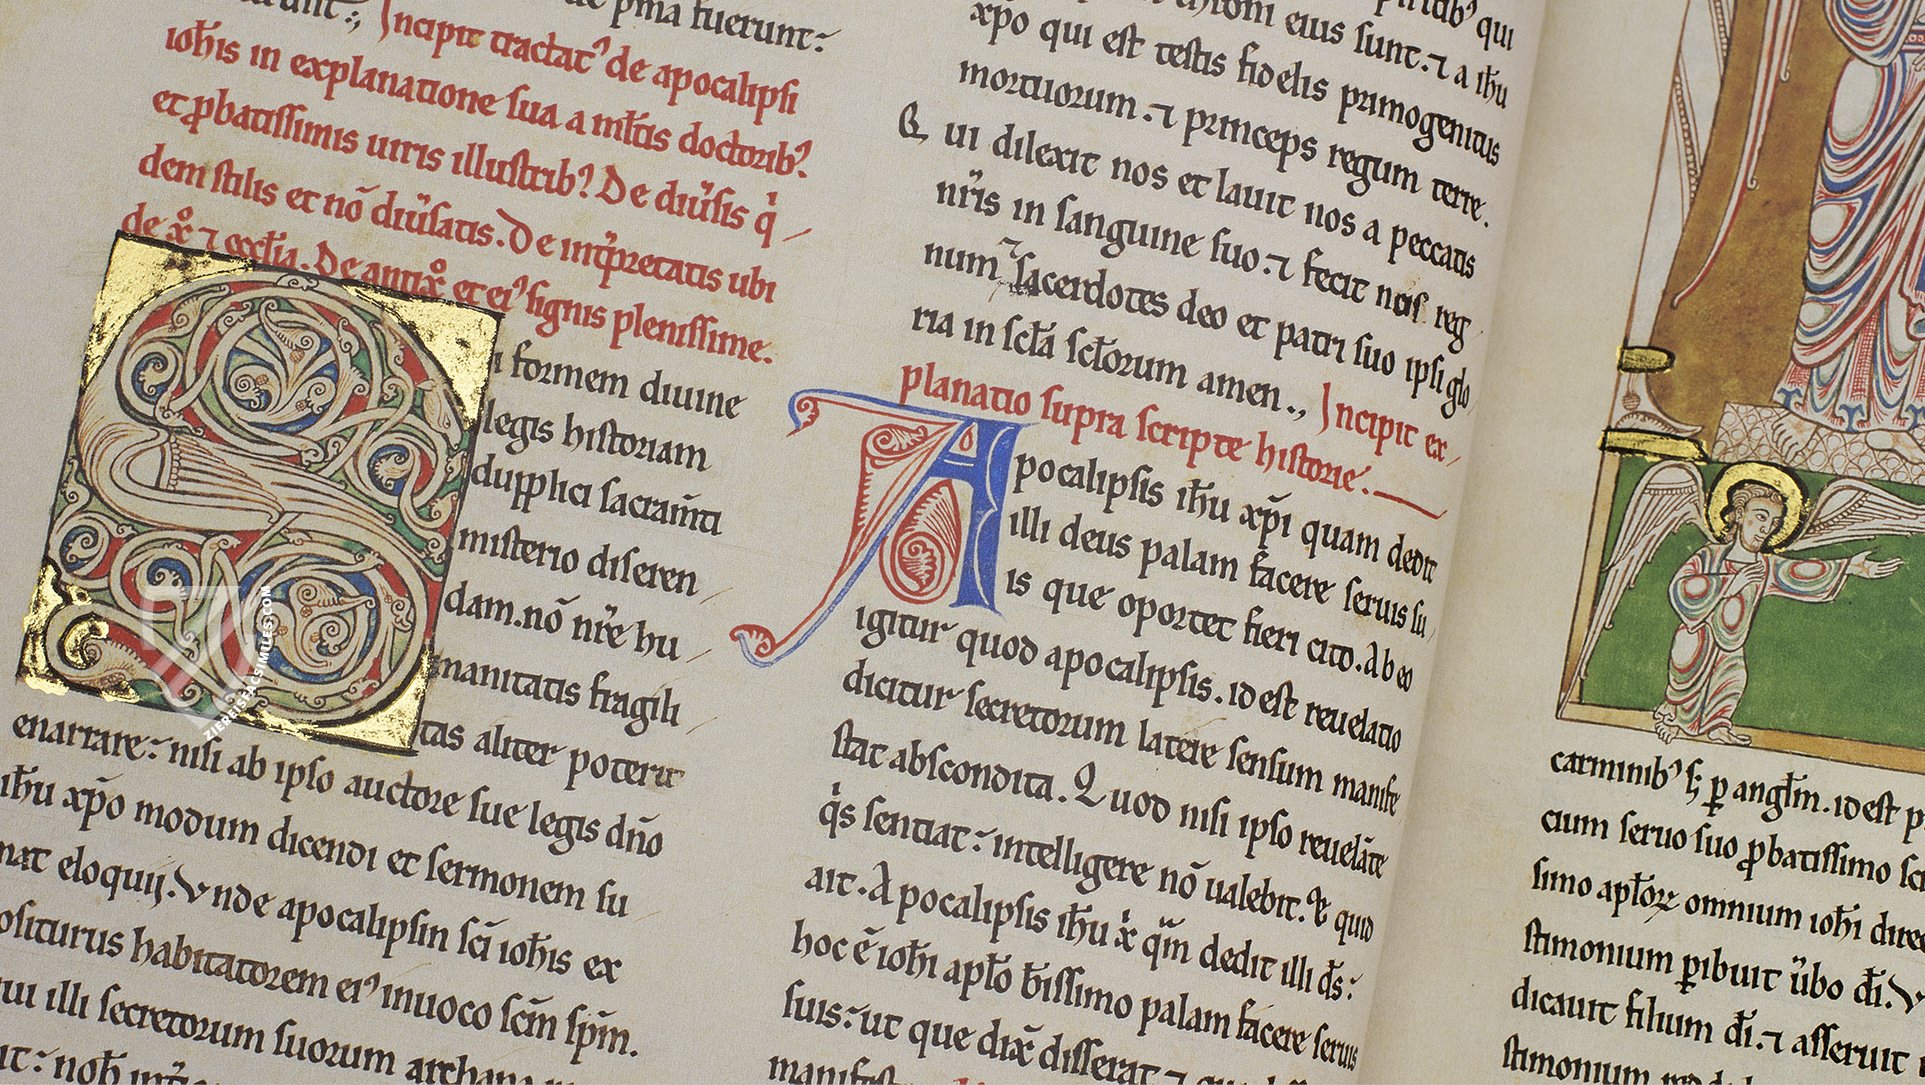 p̄ma fuerunt:
Incipit tractatꝰ de apocalipsi
ioh̄is in explanatione sua a ml̄tis doctoribꝰ.
et ꝓbatissimis uiris illustribꝰ. De diu̾sis q̇
dem stilis et nō diu̾satis. De int̾pretatis ubi
de xp̊ ⁊ eccl̄ia. De antix̊ et eiꝰ signis plenissime.
i formem diuine
legis historiam
dupplici sacram̄ti
misterio diseren
dam. nō nr̄e hu
manitatis fragili
tas aliter poterit
enarrare: nisi ab ipso auctore sue legis dn̄o
ih̄u xp̄o modum dicendi et sermonem su
mat eloquij. Vnde apocalipsin sc̄i ioh̄is ex
positurus habitatorem eiꝰ inuoco sc̄m sp̄m.
ui illi secretorum suorum archana
qui
eius sunt. ⁊ a ih̄u
xp̄o qui est testis fidelis primogenitus
mortuorum. ⁊ princeps regum terre.
Qui dilexit nos et lauit nos a peccatis
nr̄is in sanguine suo. ⁊ fecit nos reg
num ⁊ sacerdotes deo et patri suo ipsi glo
ria in scl̄a scl̄orum amen., Incipit ex
planatio supra scripte historie.
Apocalipsis ih̄u xp̄i quam dedit
illi deus palam facere seruis su
is que oportet fieri cito. Ab eo
igitur quod apocalipsis. id est reuelatio
dicitur secretorum latere sensum manife
stat abscondita. Quod nisi ipso reuelāte
q̇s sentiat: intelligere nō ualebit. Et quid
ait. Apocalipsis ih̄u ẋ q̄m dedit illi ds̄:
hoc ē ioh̄i apl̄o b̄issimo palam facere seruis
suis: ut que dix̄ disserat ⁊
carminibꝰ s; ꝑ angl̄m. id est p
cium seruo suo ꝓbatissimo sc
simo apl̄oꝝ omnium ioh̄i direc
stimonium ꝑibuit u̾bo dī. V
dicauit filium dī. ⁊ asseruit
stimonium
ZIEREIS FACSIMILES.COM